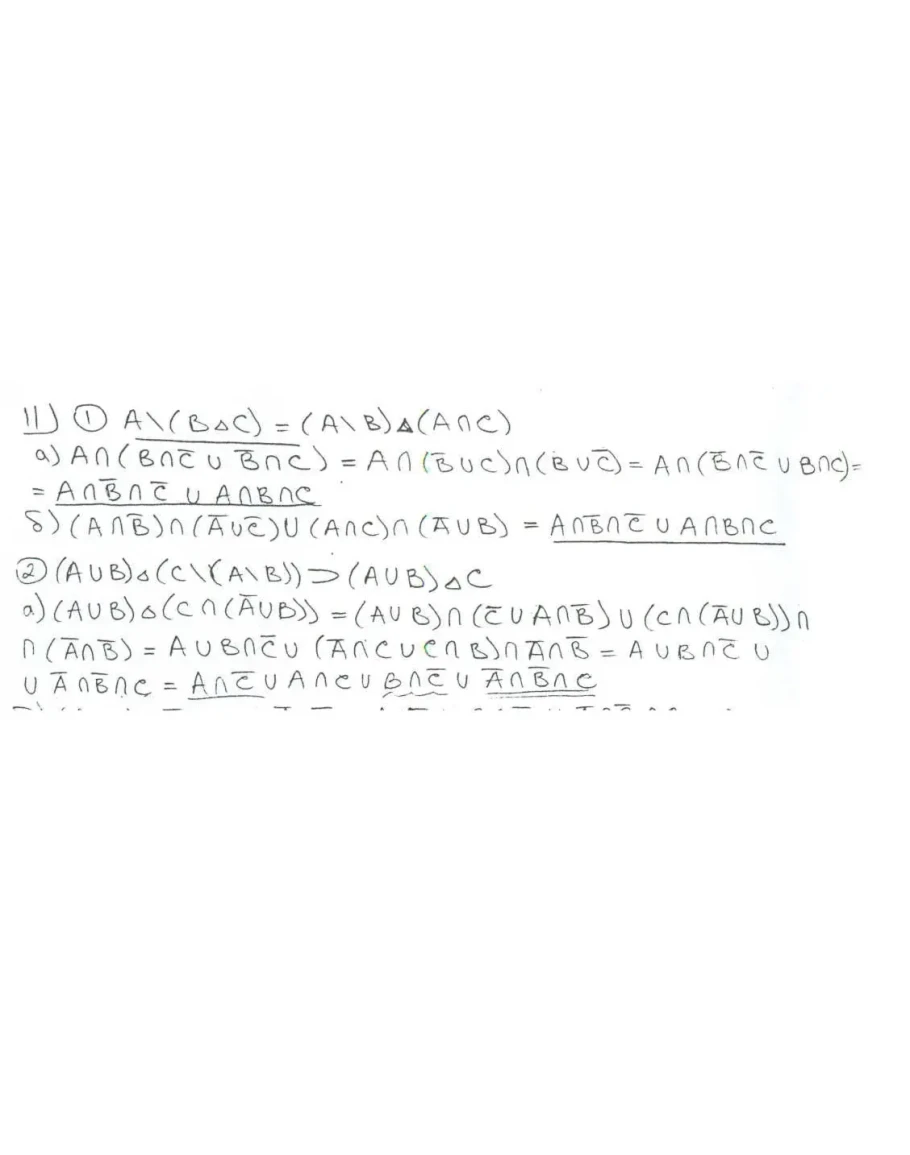 11) ① A\(B△C) = (A\B)△(A∩C)
а) A∩(\overline{B∩C̅ ∪ B̅∩C}) = A∩(B̅∪C)∩(B∪C̅) = A∩(B̅∩C̅ ∪ B∩C) =
= A∩B̅∩C̅ ∪ A∩B∩C
б) (A∩B̅)∩(A̅∪C̅)∪(A∩C)∩(A̅∪B) = A∩B̅∩C̅ ∪ A∩B∩C
② (A∪B)△(C\(A\B)) ⊃ (A∪B)△C
а) (A∪B)△(C∩(A̅∪B)) = (A∪B)∩(C̅∪A∩B̅)∪(C∩(A̅∪B))∩
∩(A̅∩B̅) = A∪B∩C̅∪(A̅∩C∪C∩B)∩A̅∩B̅ = A∪B∩C̅∪
∪A̅∩B̅∩C = A∩C̅∪A∩C∪B∩C̅∪A̅∩B̅∩C